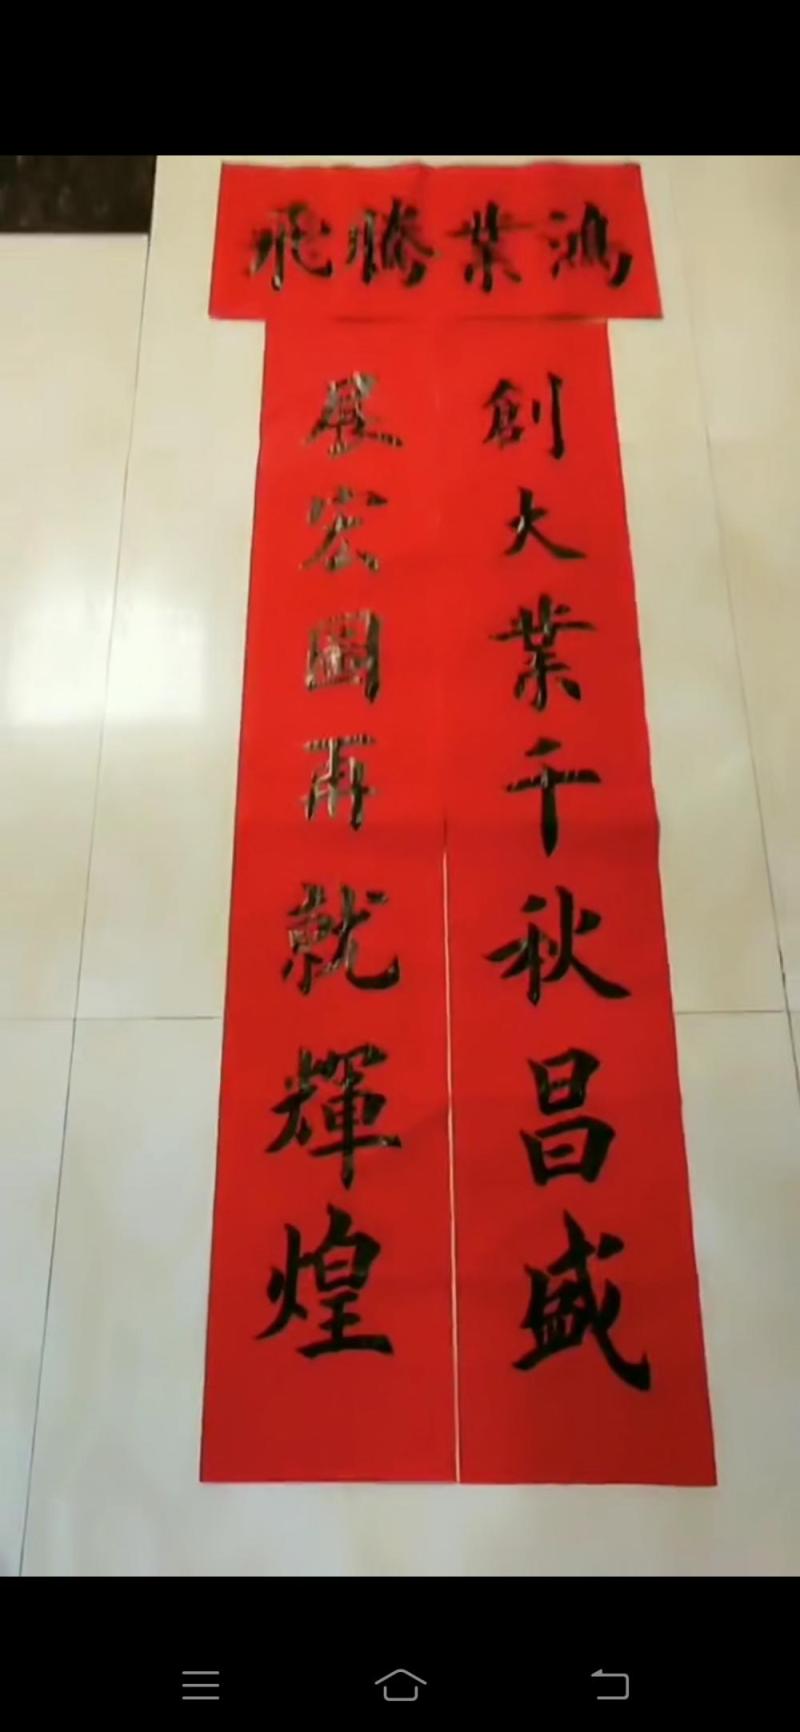 鴻業騰飛
創大業千秋昌盛
展宏圖再就輝煌